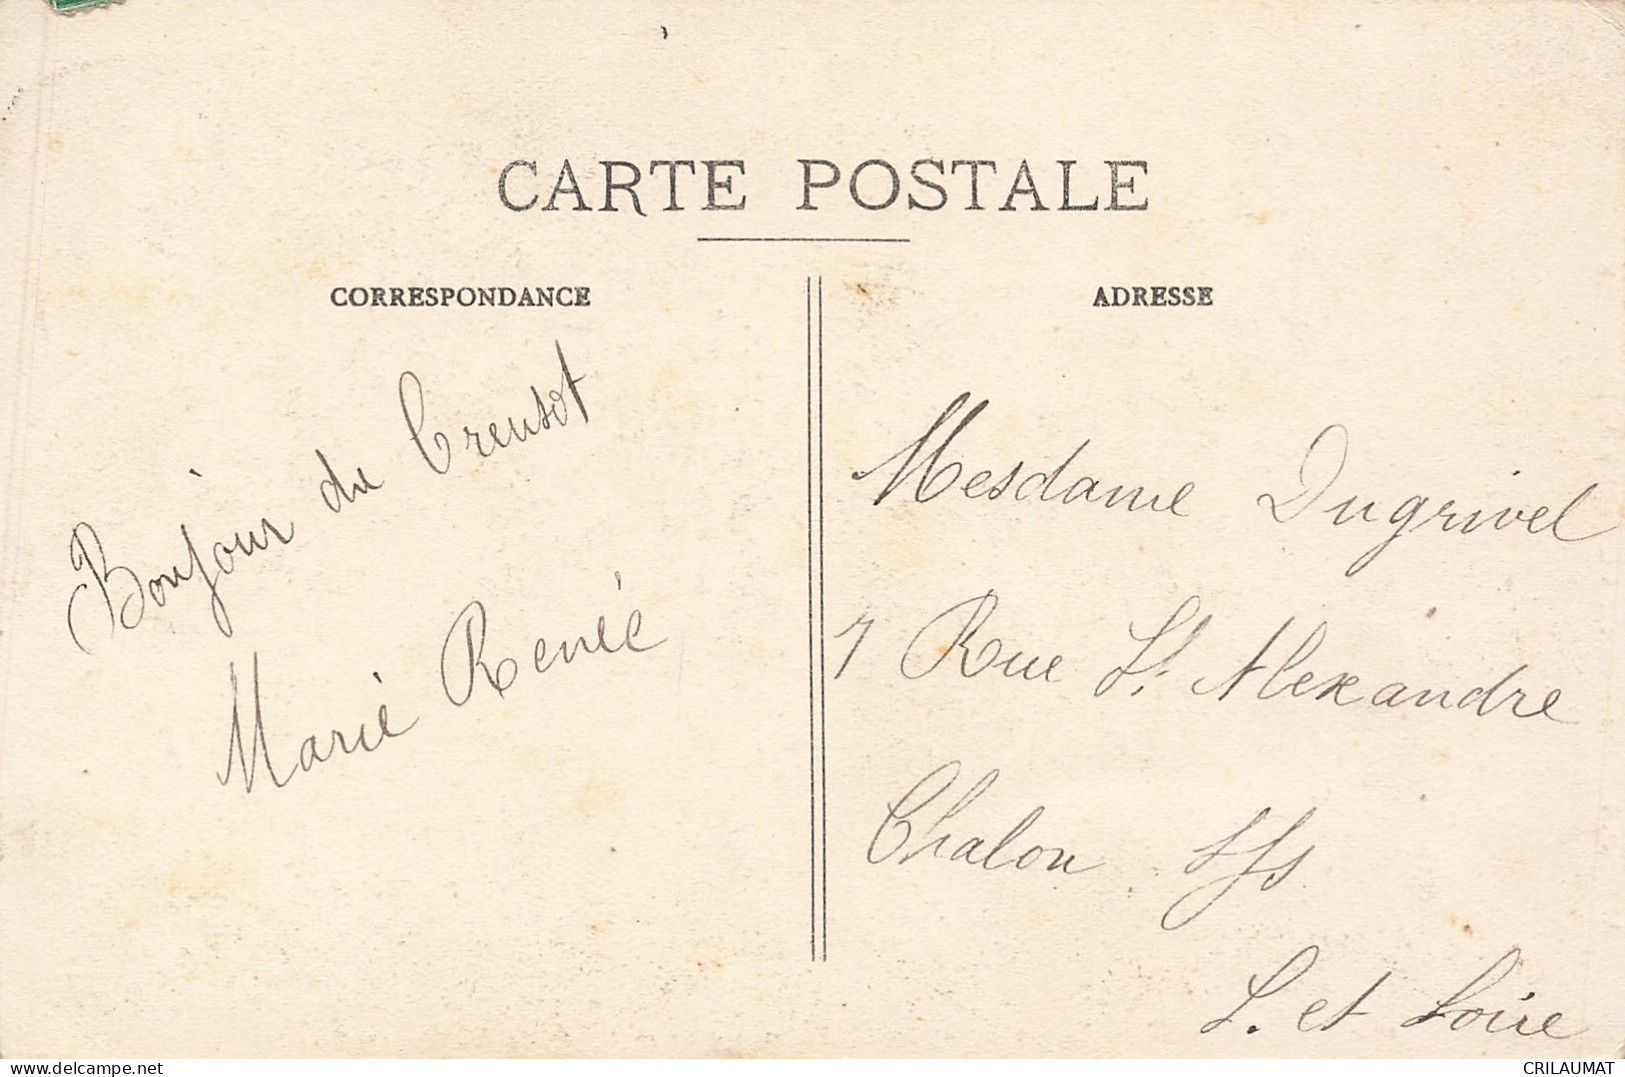 CARTE POSTALE
CORRESPONDANCE
Bonjour du Creusot
Marie Renée
ADRESSE
Mesdame Dugrivel
7 Rue St Alexandre
Chalon s/s
S. et Loire
delcampe.net
CRILAUMAT